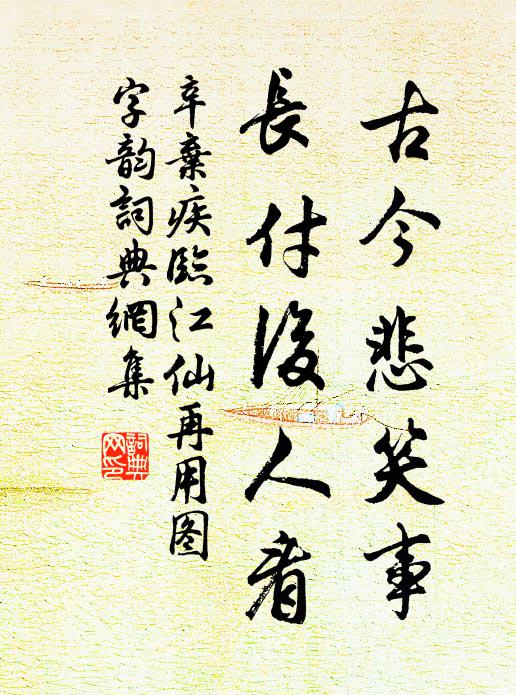 古今悲笑事
長付後人看
辛棄疾臨江仙再用图
字韵詞典網集
詞典
网印